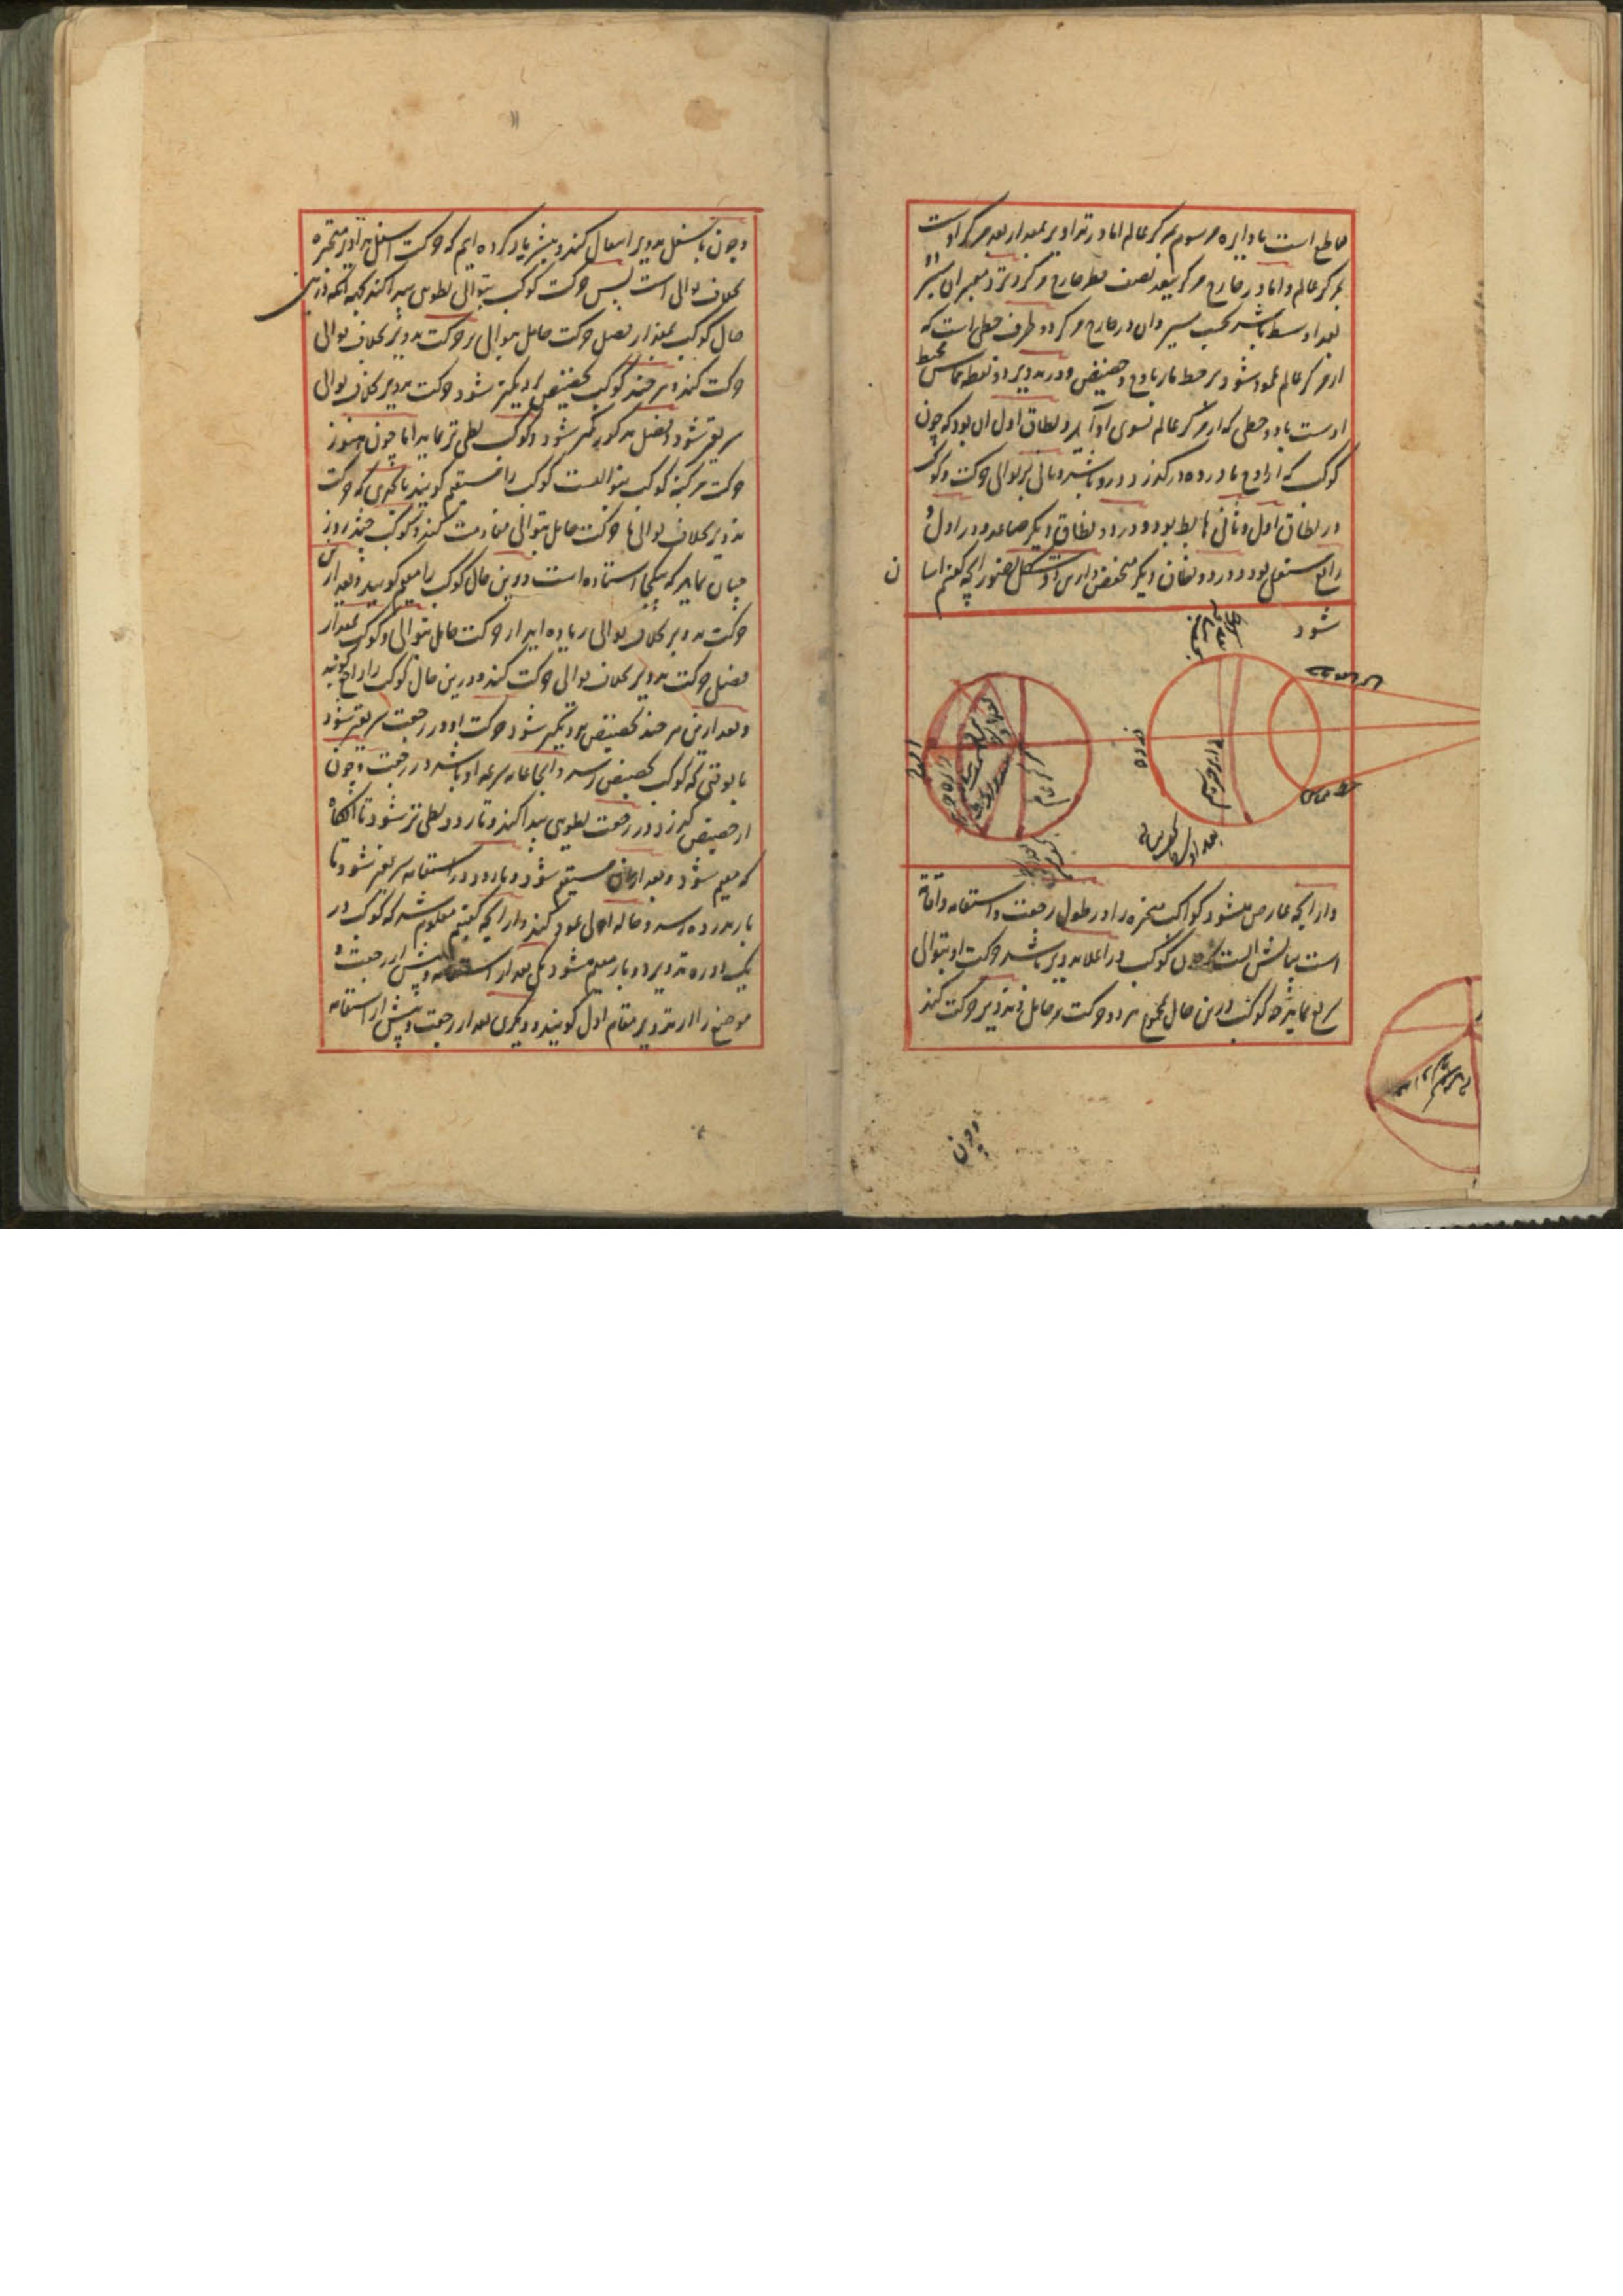 قاطع است با دایره مرسوم بر مرکز عالم اما در تداویر بمقدار بعد مرکز اوست
بمرکز عالم و اما در خارج مرکز ببعد نصف قطر خارج مرکز و نزد معبران سیر
بعد اوسط باشد بحسب سیر و ان در خارج مرکز دو طرف خطی است که
از مرکز عالم عمود شود بر خط مار باوج و حضیض و در تدویر دو نقطه تماس محیط
اوست با دو خطی که از مرکز عالم بسوی او آید و نطاق اول ان بود که چون
کوکب که از اوج یا ذروه درکذرد درو باشد و ثانی بر توالی حرکت و کوکب
در نطاق اول و ثانی هابط بود و در دو نطاق دیکر صاعد و در اول و
رابع مستعلی بود و در دو نطاق دیکر منخفض و از این شکل تصور انچه کفتم اسان
شود
ذروه
مرکز عالم
خط مماس
و از انچه عارض میشود کواکب متحیره را در طول رجعت و استقامه و اقامة
است بیانش انست که چون کوکب در اعلا تدویر باشد حرکت او بتوالی
سریع نماید چه کوکب درین حال بمجموع هر دو حرکت مر حامل و تدویر حرکت کند
وچون
وچون باسفل تدویر انتقال کند و پیشتر یاد کرده ایم که حرکت اسفل تداویر متحیره
بخلاف توالی است پس حرکت کوکب بتوالی بطوی پیدا کند بجهه انکه درین
حال کوکب بمقدار فضل حرکت حامل بتوالی بر حرکت تدویر بخلاف توالی
حرکت کند و هر چند کوکب بحضیض نزدیکتر شود حرکت تدویر بخلاف توالی
سریعتر شود و فضل مذکور کمتر شود و کوکب بطی تر نماید اما چون هنوز
حرکت مرکز کوکب بتوالیست کوکب را مستقیم کویند تا بحدی که حرکت
تدویر بخلاف توالی با حرکت حامل بتوالی مقاومت کند و کوکب چند روز
چنان نماید که یکجا استاده است و درین حال کوکب را مقیم کویند و بعد ازین
حرکت تدویر بخلاف توالی زیاده اید از حرکت حامل بتوالی و کوکب بمقدار
فضل حرکت تدویر بخلاف توالی حرکت کند و درین حال کوکب را راجع کویند
و بعد ازین هر چند بحضیض نزدیکتر شود حرکت او در رجعت سریعتر شود
تا بوقتی که کوکب بحضیض رسد و انجا غایه سرعه او باشد در رجعت و چون
از حضیض کذرد در رجعت بطوی پیدا کند و تا رود بطی تر شود تا انکاه
که مقیم شود و بعد از ان مستقیم شود و تا رود در استقامه سریعتر شود تا
باز بذروه رسد و حاله اولی عود کند و از انچه کفتیم معلوم شد که کوکب در
یک دوره تدویر دو بار مقیم شود یکی بعد از استقامه و پیش از رجعت و
موضع را از تدویر مقام اول کویند و دیکری بعد از رجعت و پیش از استقامه